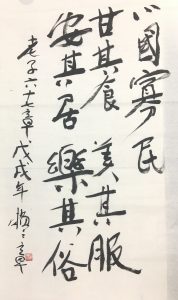 小國寡民
甘其食 美其服
安其居 樂其俗
老子六十七章 戊戌年